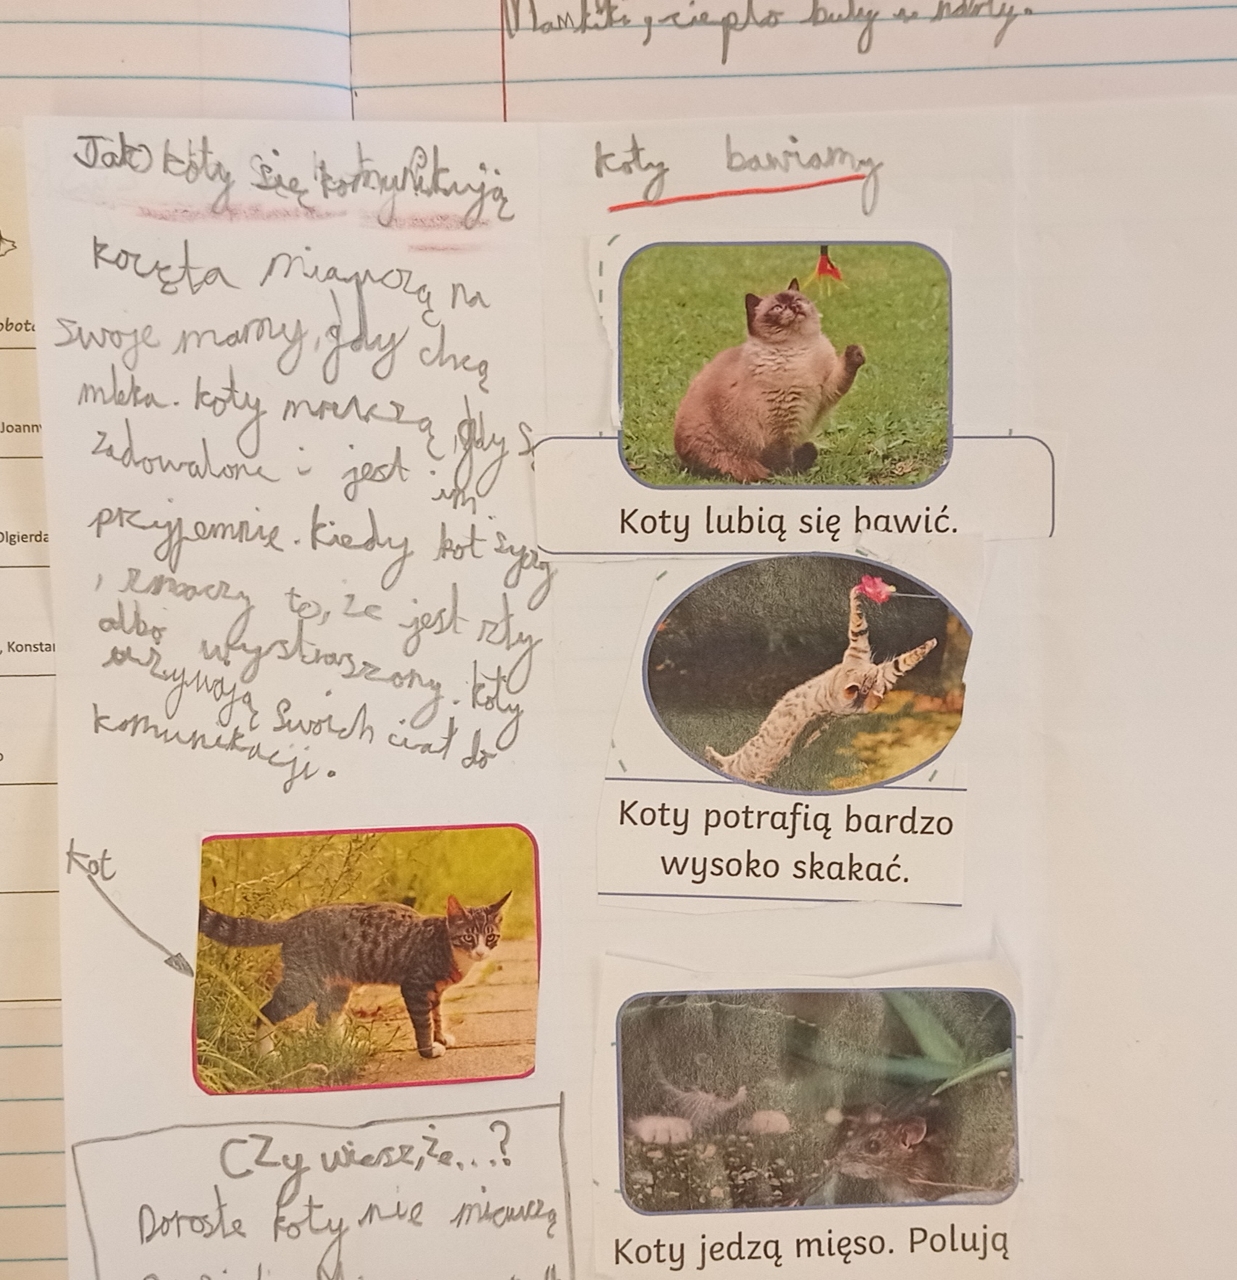 ciepło były w
Jak koty się komunikują
kocęta miauczą na
swoje mamy, gdy chcą
mleka. koty mruczą, gdy s
zadowolone i jest
im
przyjemnie. Kiedy kot syczy
, znaczy to, że jest zły
albo wystraszony. koty
urzywają swoich ciał do
komunikacji.
Kot
Czy wiesz, że...?
Dorosłe koty nie miauczą
koty bawiamy
Koty lubią się bawić.
Koty potrafią bardzo
wysoko skakać.
Koty jedzą mięso. Polują
obota
Joann
Olgierda
, Konstan